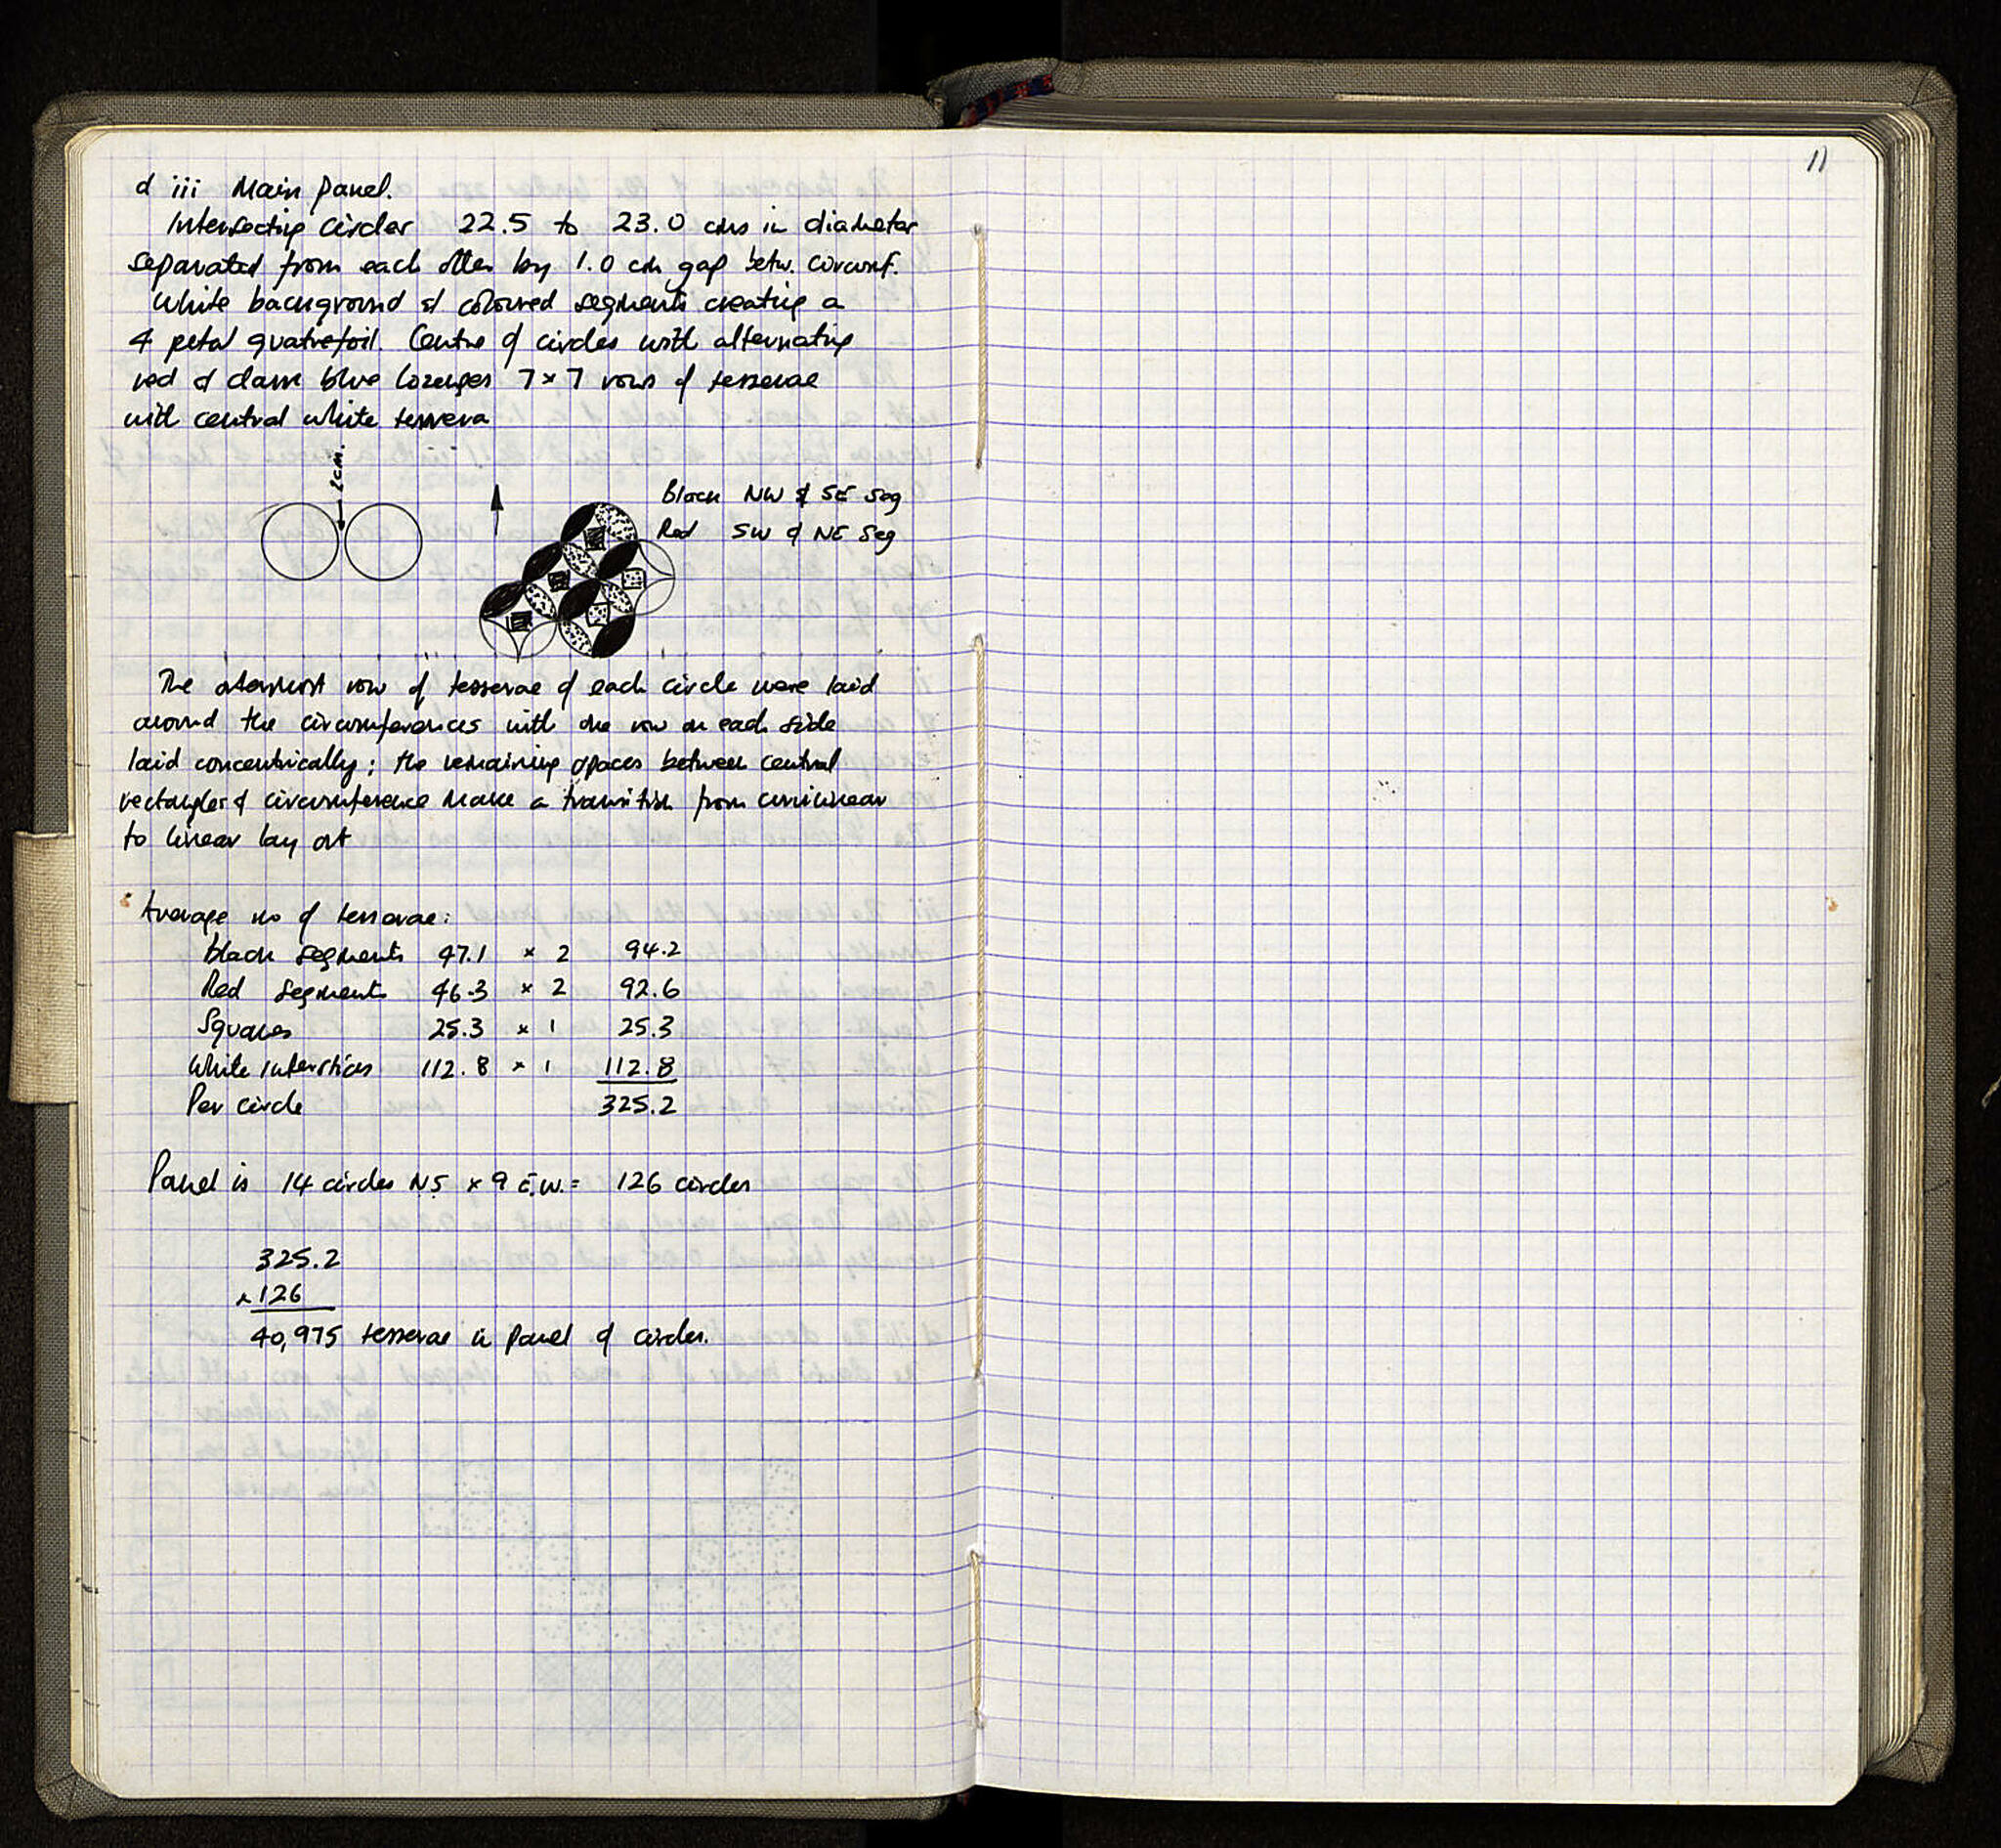 11
d iii Main panel.
Intersecting circles 22.5 to 23.0 cms in diameter
separated from each other by 1.0 cm gap betw. circumf.
White background & coloured segments creating a
4 petal quatrefoil. Centre of circles with alternating
red & dark blue lozenges 7 × 7 rows of tesserae
with central white tessera
cm.
Black NW & SE Seg
Red SW & NE Seg
The outermost row of tesserae of each circle were laid
around the circumferences with one row on each side
laid concentrically; the remaining spaces between central
rectangles & circumference make a transition from curvilinear
to linear lay out
Average no of tesserae:
Black segments 47.1 × 2 94.2
Red Segments 46.3 × 2 92.6
Squares 25.3 × 1 25.3
White interstices 112.8 × 1 112.8
Per circle 325.2
Panel is 14 circles NS × 9 E.W. = 126 circles
325.2
× 126
40,975 tesserae in panel of circles.